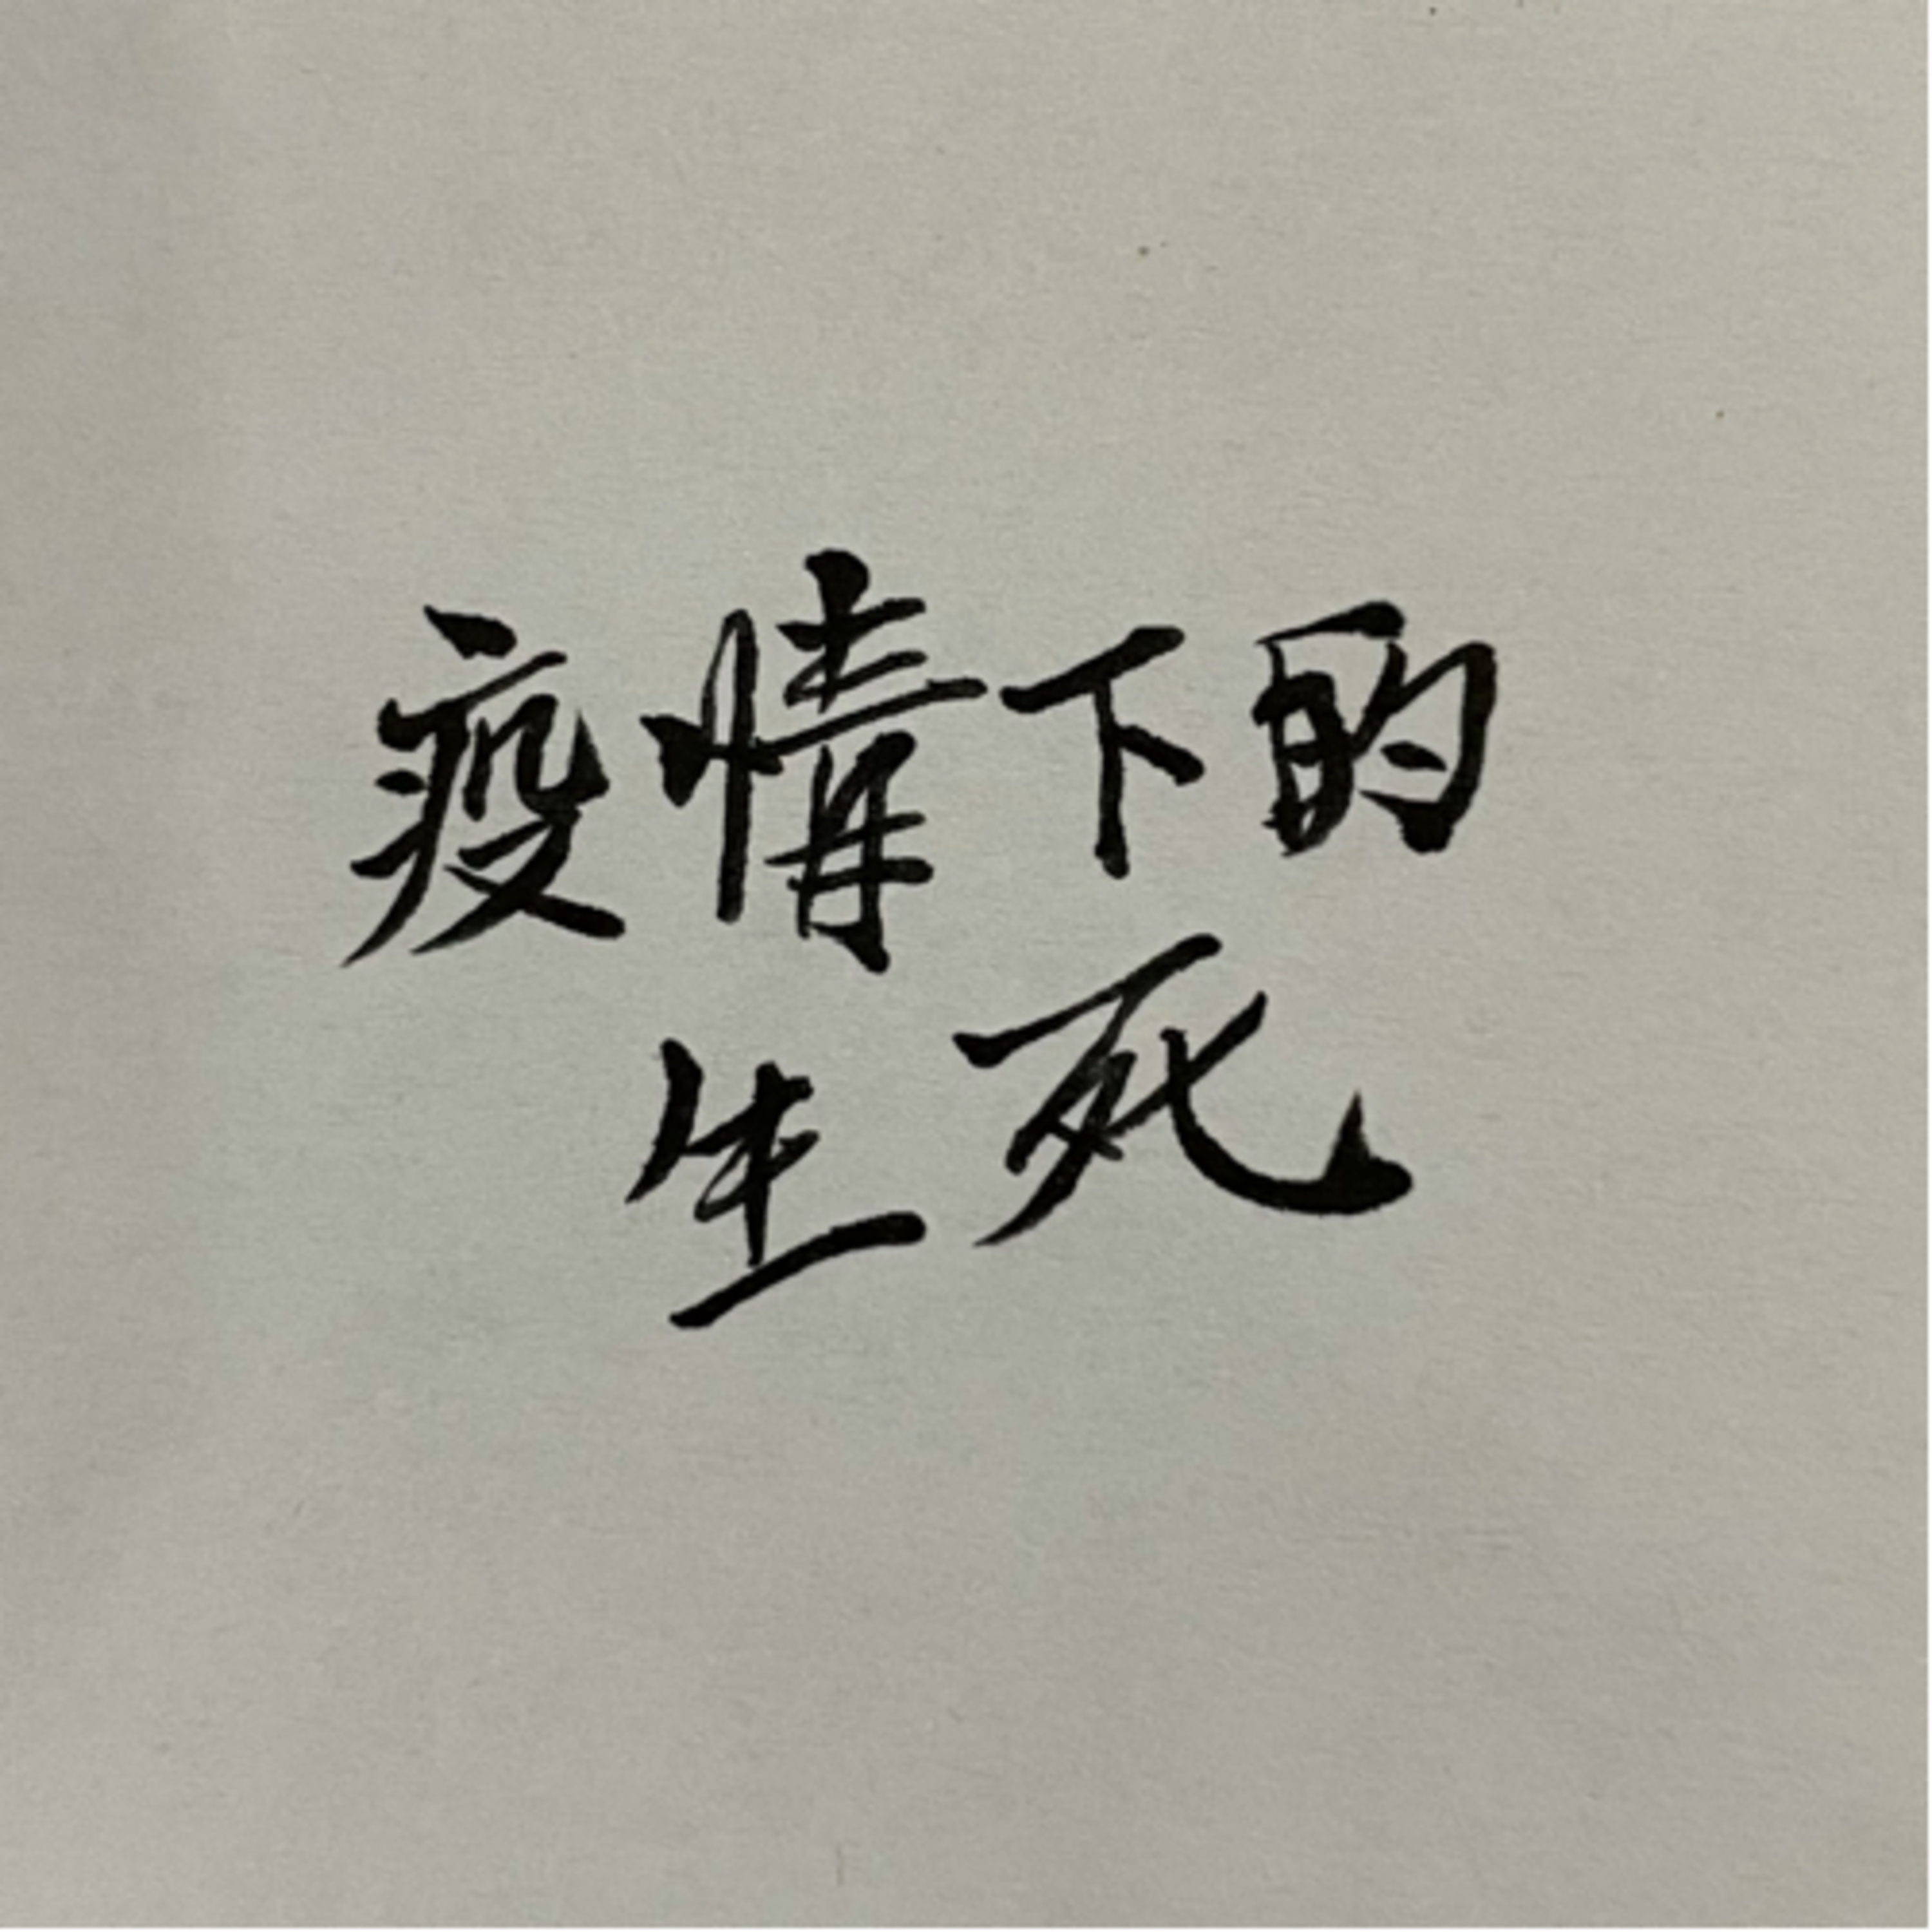 疫情下的
生死